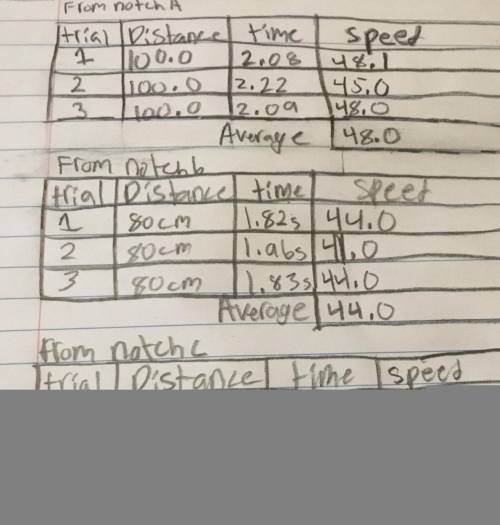 From notch A
trial Distance time speed
1 100.0 2.08 48.1
2 100.0 2.22 45.0
3 100.0 2.09 48.0
Average 48.0
From notch b
trial Distance time speed
1 80cm 1.82s 44.0
2 80cm 1.96s 41.0
3 80cm 1.83s 44.0
Average 44.0
from notch c
trial Distance time speed